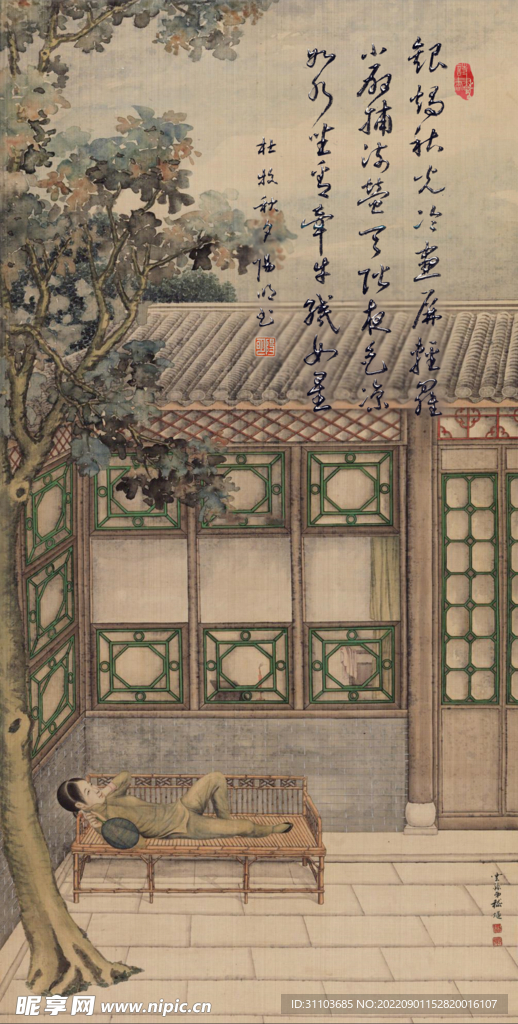 銀燭秋光冷畫屏輕羅
小扇捕流螢天階夜色涼
如水坐看牽牛織女星
杜牧秋夕
昵享网 www.nipic.cn
ID:31103685 NO:20220901152820016107